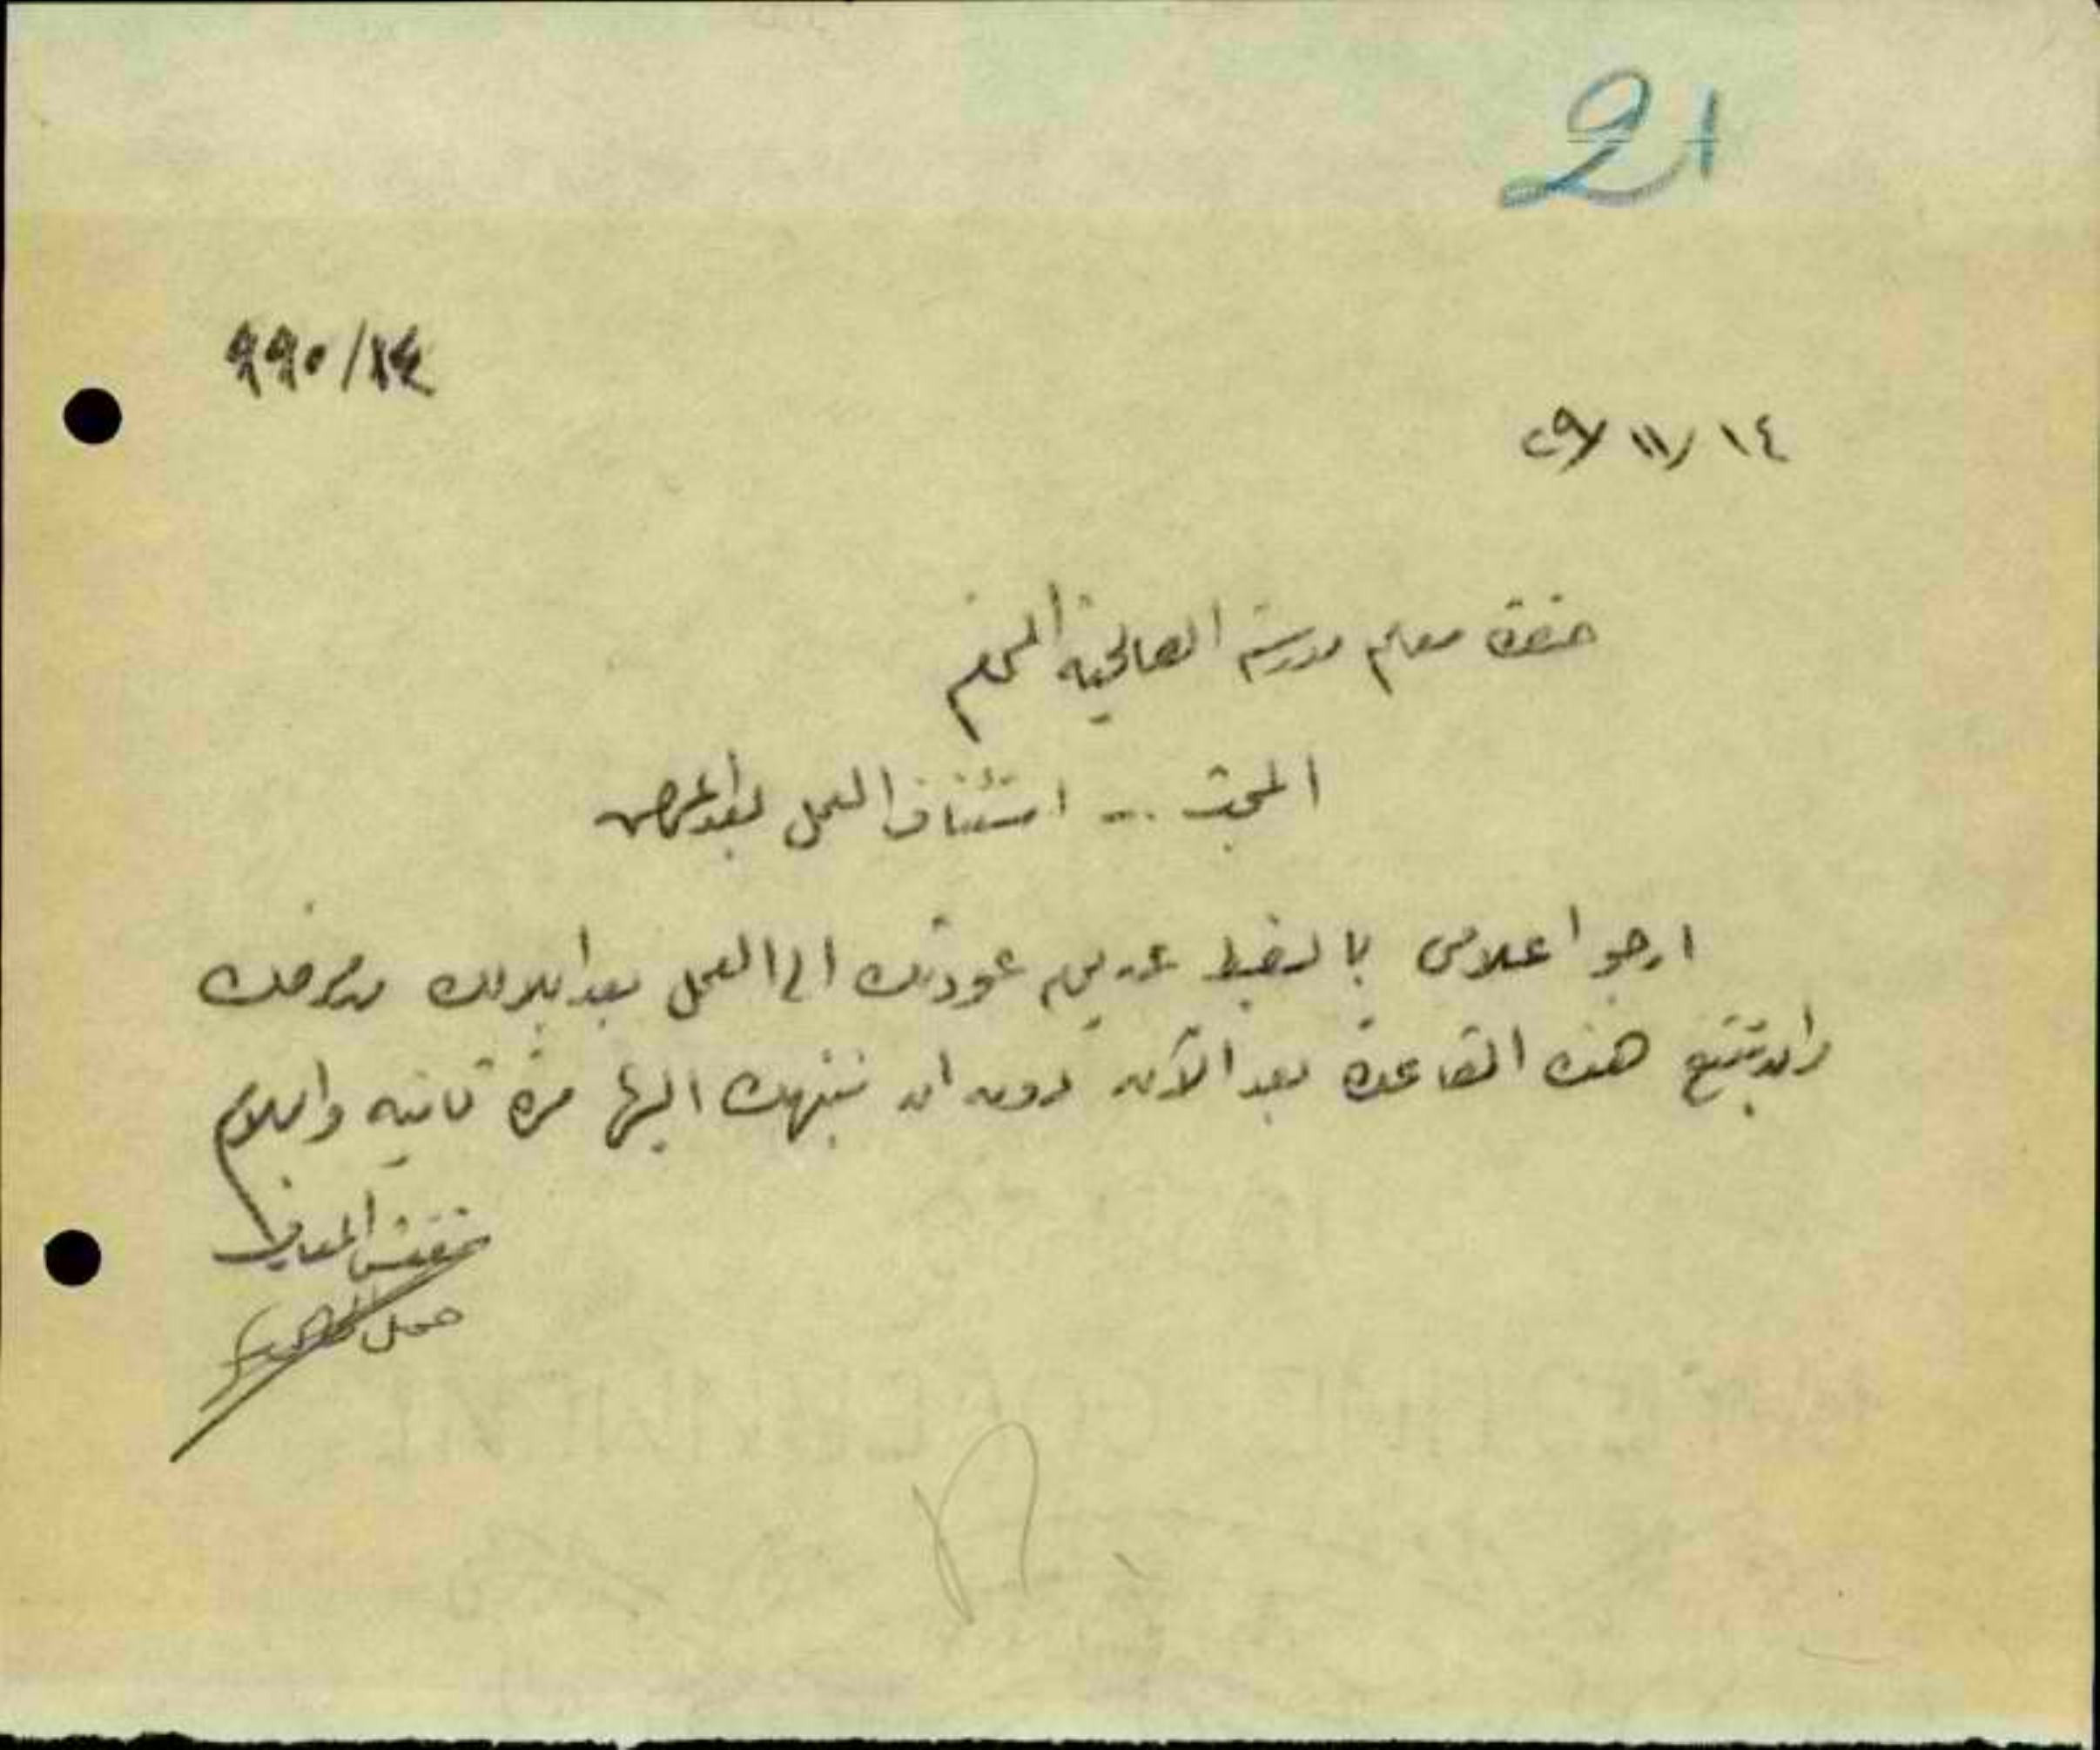 21
٩٩٠/١٤
١٤/١١/٢٩
حضرة معلم مدرسة الصالحية المحترم
المبحث -- استئناف العمل بعد المرض
ارجو اعلامي بالضبط عن يوم عودتك الى العمل بعد ابلالك من مرضك
وان تتبع هذه القاعدة بعد الآن دون ان ننبهك اليها مرة ثانيه والسلام
مفتش المعارف